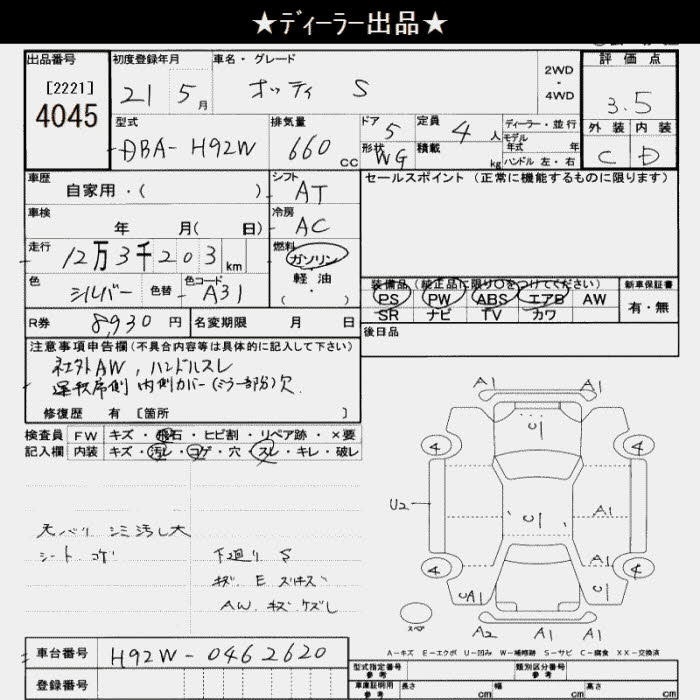 ★ディーラー出品★
出品番号
[2221]
4045
初度登録年月
21 5 月
車名・グレード
オッティ S
2WD
・
4WD
評価点
3.5
外装 内装
C D
型式
DBA- H92W
排気量
660 cc
ドア 5
形状 WG
定員 4 人
積載 kg
ディーラー・並行
モデル
年式 年
ハンドル 左・右
車歴
自家用・( )
シフト
AT
セールスポイント (正常に機能するものに限ります)
車検
年 月( 日)
冷房
AC
走行
12万3千203 km
燃料
ガソリン
軽油
( ・ )
色
シルバー
色替
色コード
A31
装備品(純正品に限り○をつけてください)
PS PW ABS エアB AW
SR ナビ TV カワ
新車保証書
有・無
R券
8,930 円
名変期限 月 日
後日品
注意事項申告欄(不具合内容等は具体的に記入して下さい)
社外AW, ハンドルスレ
運転席側 内側カバー(ミラー部分)欠
修復歴 有 [箇所 ]
検査員
記入欄
FW キズ・飛石・ヒビ割・リペア跡・×要
内装 キズ・汚レ・コゲ・穴・スレ・キレ・破レ
天バリ シミ汚レ大
シート コゲ
下廻り S
キズ E スリキズ
AW. キズ ケズレ
A1 A1
U
4 4
U2
U A1
A1
4 4
UA1 U
スペア
A2 A1 A1
A-キズ E-エクボ U-凹み W-補修跡 S-サビ C-腐食 XX-交換済
車台番号
H92W - 0462620
登録番号
型式指定番号
参考
類別区分番号
参考
車庫証明用
参考
長さ cm
幅 cm
高さ cm